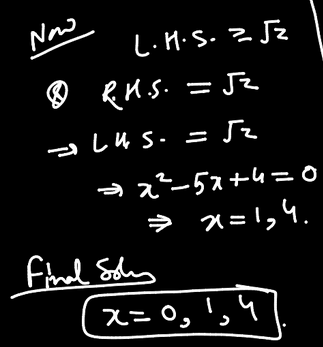 Now L.H.S. ≥ √2
& R.H.S. = √2
→ LHS. = √2
⇒ x²-5x+4=0
⇒ x=1,4.
Final Soln
x=0,1,4.